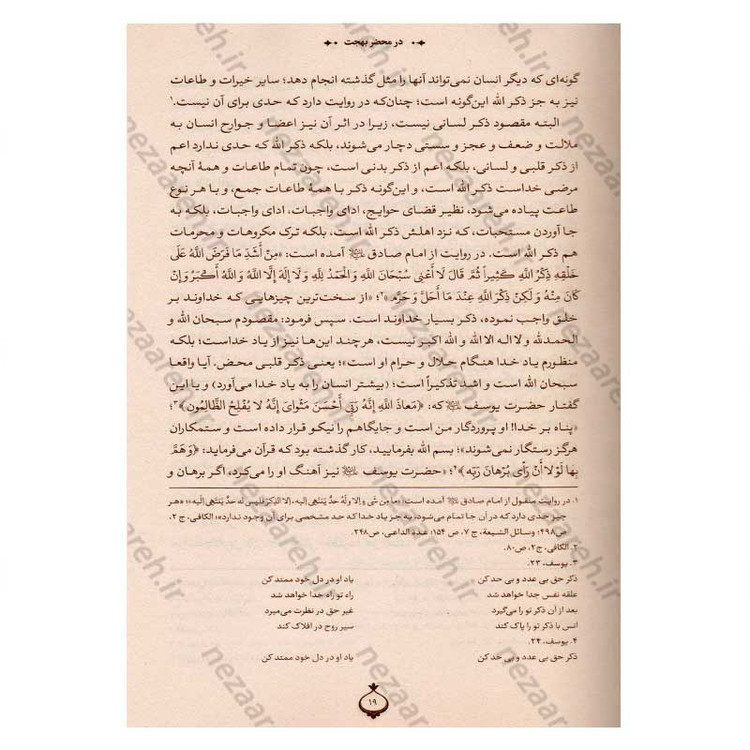 در محضر بهجت
گونه‌ای که دیگر انسان نمی‌تواند آنها را مثل گذشته انجام دهد؛ سایر خیرات و طاعات
نیز به جز ذکر الله این‌گونه است؛ چنان‌که در روایت دارد که حدی برای آن نیست.۱
البته مقصود ذکر لسانی نیست، زیرا در اثر آن نیز اعضا و جوارح انسان به
ملالت و ضعف و عجز و سستی دچار می‌شوند، بلکه ذکر الله که حدی ندارد اعم
از ذکر قلبی و لسانی، بلکه اعم از ذکر بدنی است، چون تمام طاعات و همهٔ آنچه
مرضی خداست ذکر الله است، و این‌گونه ذکر با همهٔ طاعات جمع، و با هر نوع
طاعت پیاده می‌شود، نظیر قضای حوایج، ادای واجبات، ادای واجبات، بلکه به
جا آوردن مستحبات، که نزد اهلش ذکر الله است، بلکه ترک مکروهات و محرمات
هم ذکر الله است. در روایت از امام صادق آمده است: «مِنْ أَشَدِّ مَا فَرَضَ اللَّهُ عَلَى
خَلْقِهِ ذِكْرُ اللَّهِ كَثِيراً ثُمَّ قَالَ لَا أَعْنِي سُبْحَانَ اللَّهِ وَ الْحَمْدُ لِلَّهِ وَ لَا إِلَهَ إِلَّا اللَّهُ وَ اللَّهُ أَكْبَرُ وَ إِنْ
كَانَ مِنْهُ وَ لَكِنْ ذِكْرَ اللَّهِ عِنْدَ مَا أَحَلَّ وَ حَرَّمَ»۲؛ «از سخت‌ترین چیزهایی که خداوند بر
خلق واجب نموده، ذکر بسیار خداوند است. سپس فرمود: مقصودم سبحان الله و
الحمدلله و لا اله الا الله و الله اکبر نیست، هرچند این‌ها نیز از یاد خداست؛ بلکه
منظورم یاد خدا هنگام حلال و حرام او است»؛ یعنی ذکر قلبی محض. آیا واقعا
سبحان الله است و اشد تذکیراً است؛ (بیشتر انسان را به یاد خدا می‌آورد) و یا این
گفتار حضرت یوسف که: ﴿مَعَاذَ اللَّهِ إِنَّهُ رَبِّي أَحْسَنَ مَثْوَايَ إِنَّهُ لَا يُفْلِحُ الظَّالِمُونَ﴾۳؛
«پناه بر خدا! او پروردگار من است و جایگاهم را نیکو قرار داده است و ستمکاران
هرگز رستگار نمی‌شوند»؛ بسم الله بفرمایید، کار گذشته بود که قرآن می‌فرماید: ﴿وَ هَمَّ
بِهَا لَوْ لَا أَنْ رَأَى بُرْهَانَ رَبِّهِ﴾۴؛ «حضرت یوسف نیز آهنگ او را می‌کرد، اگر برهان و
۱. در روایت منقول از امام صادق آمده است: «مَا مِنْ شَيْءٍ إِلَّا وَ لَهُ حَدٌّ يَنْتَهِي إِلَيْهِ، إِلَّا الذِّكْرَ فَلَيْسَ لَهُ حَدٌّ يَنْتَهِي إِلَيْهِ»؛ «هر
چیز حدی دارد که در آن جا تمام می‌شود، به جز یاد خدا که حد مشخصی برای آن وجود ندارد»؛ الکافی، ج ۲،
ص۴۹۸؛ وسائل الشیعة، ج ۷، ص ۱۵۴؛ عدة الداعی، ص۲۴۸.
۲. الکافی، ج۲، ص۸۰.
۳. یوسف، ۲۳.
ذکر حق بی عدد و بی حد کن یاد او در دل خود ممتد کن
علقه نفس جدا خواهد شد راه تو راه خدا خواهد شد
بعد از آن ذکر تو را می‌گیرد غیر حق در نظرت می‌میرد
انس با ذکر تو را پاک کند سیر روح در افلاک کند
۴. یوسف، ۲۴.
ذکر حق بی عدد و بی حد کن یاد او در دل خود ممتد کن
۱۹
nezaareh.ir